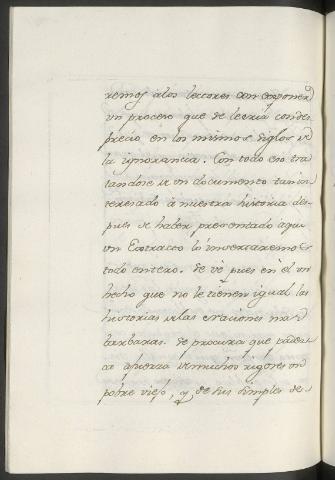 remos a los lectores con exponer
un proceso que se leeria con des
precio en los mismos siglos de
la ignorancia. Con todo en tra
tandose de un documento tan in
teresado á nuestra historia des
pues de haber presentado aqui
un Extracto lo insertaremos
todo entero. Se vé pues en el un
hecho que no le tienen igual las
historias de las naciones mas
barbaras. Se procura que padez
ca a fuerza de muchos rigores un
pobre viejo, y de sus simples de-